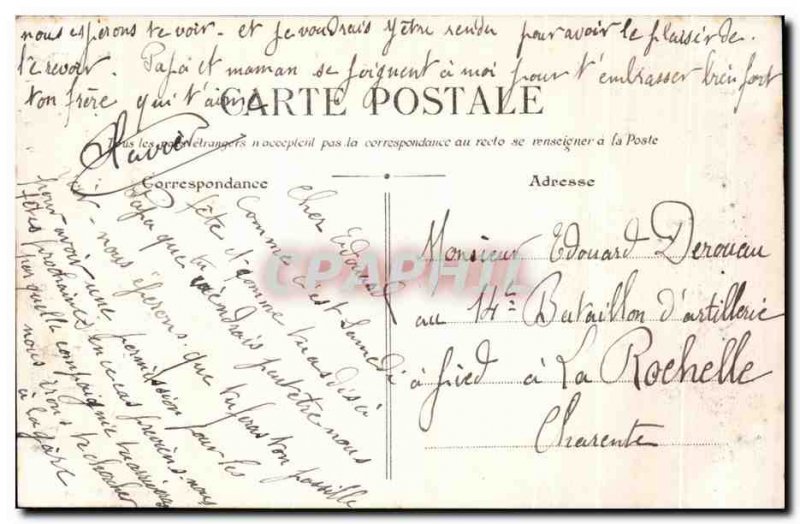 Cher Edouard
Comme c'est Samedi
fête et comme tu as dis à
Papa que tu viendrais peut être nous
voir - nous espérons que tu feras ton possible
pour avoir une permission pour les
fêtes prochaines. En ce cas préviens-nous
par quelle compagnie tu arriveras
nous irons te chercher
à la gare
nous espérons te voir - et je voudrais y être rendu pour avoir le plaisir de
te revoir. Papa et maman se joignent à moi pour t'embrasser bien fort
ton frère qui t'aime
CARTE POSTALE
Tous les pays étrangers n'acceptent pas la correspondance au recto se renseigner à la Poste
Correspondance
Adresse
Monsieur Edouard Derouau
au 14e Bataillon d'artillerie
à pied à La Rochelle
Charente
CPAPHIL